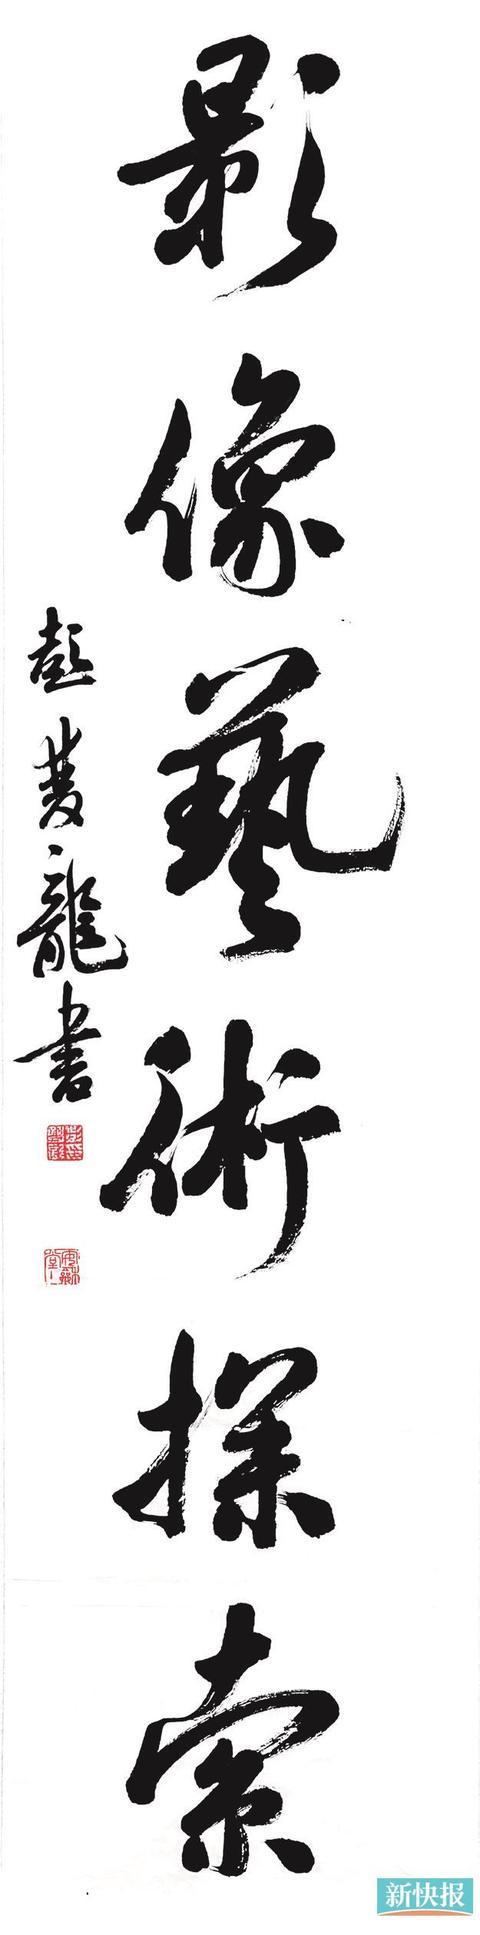 影像藝術探索
彭雙龍書
新快报